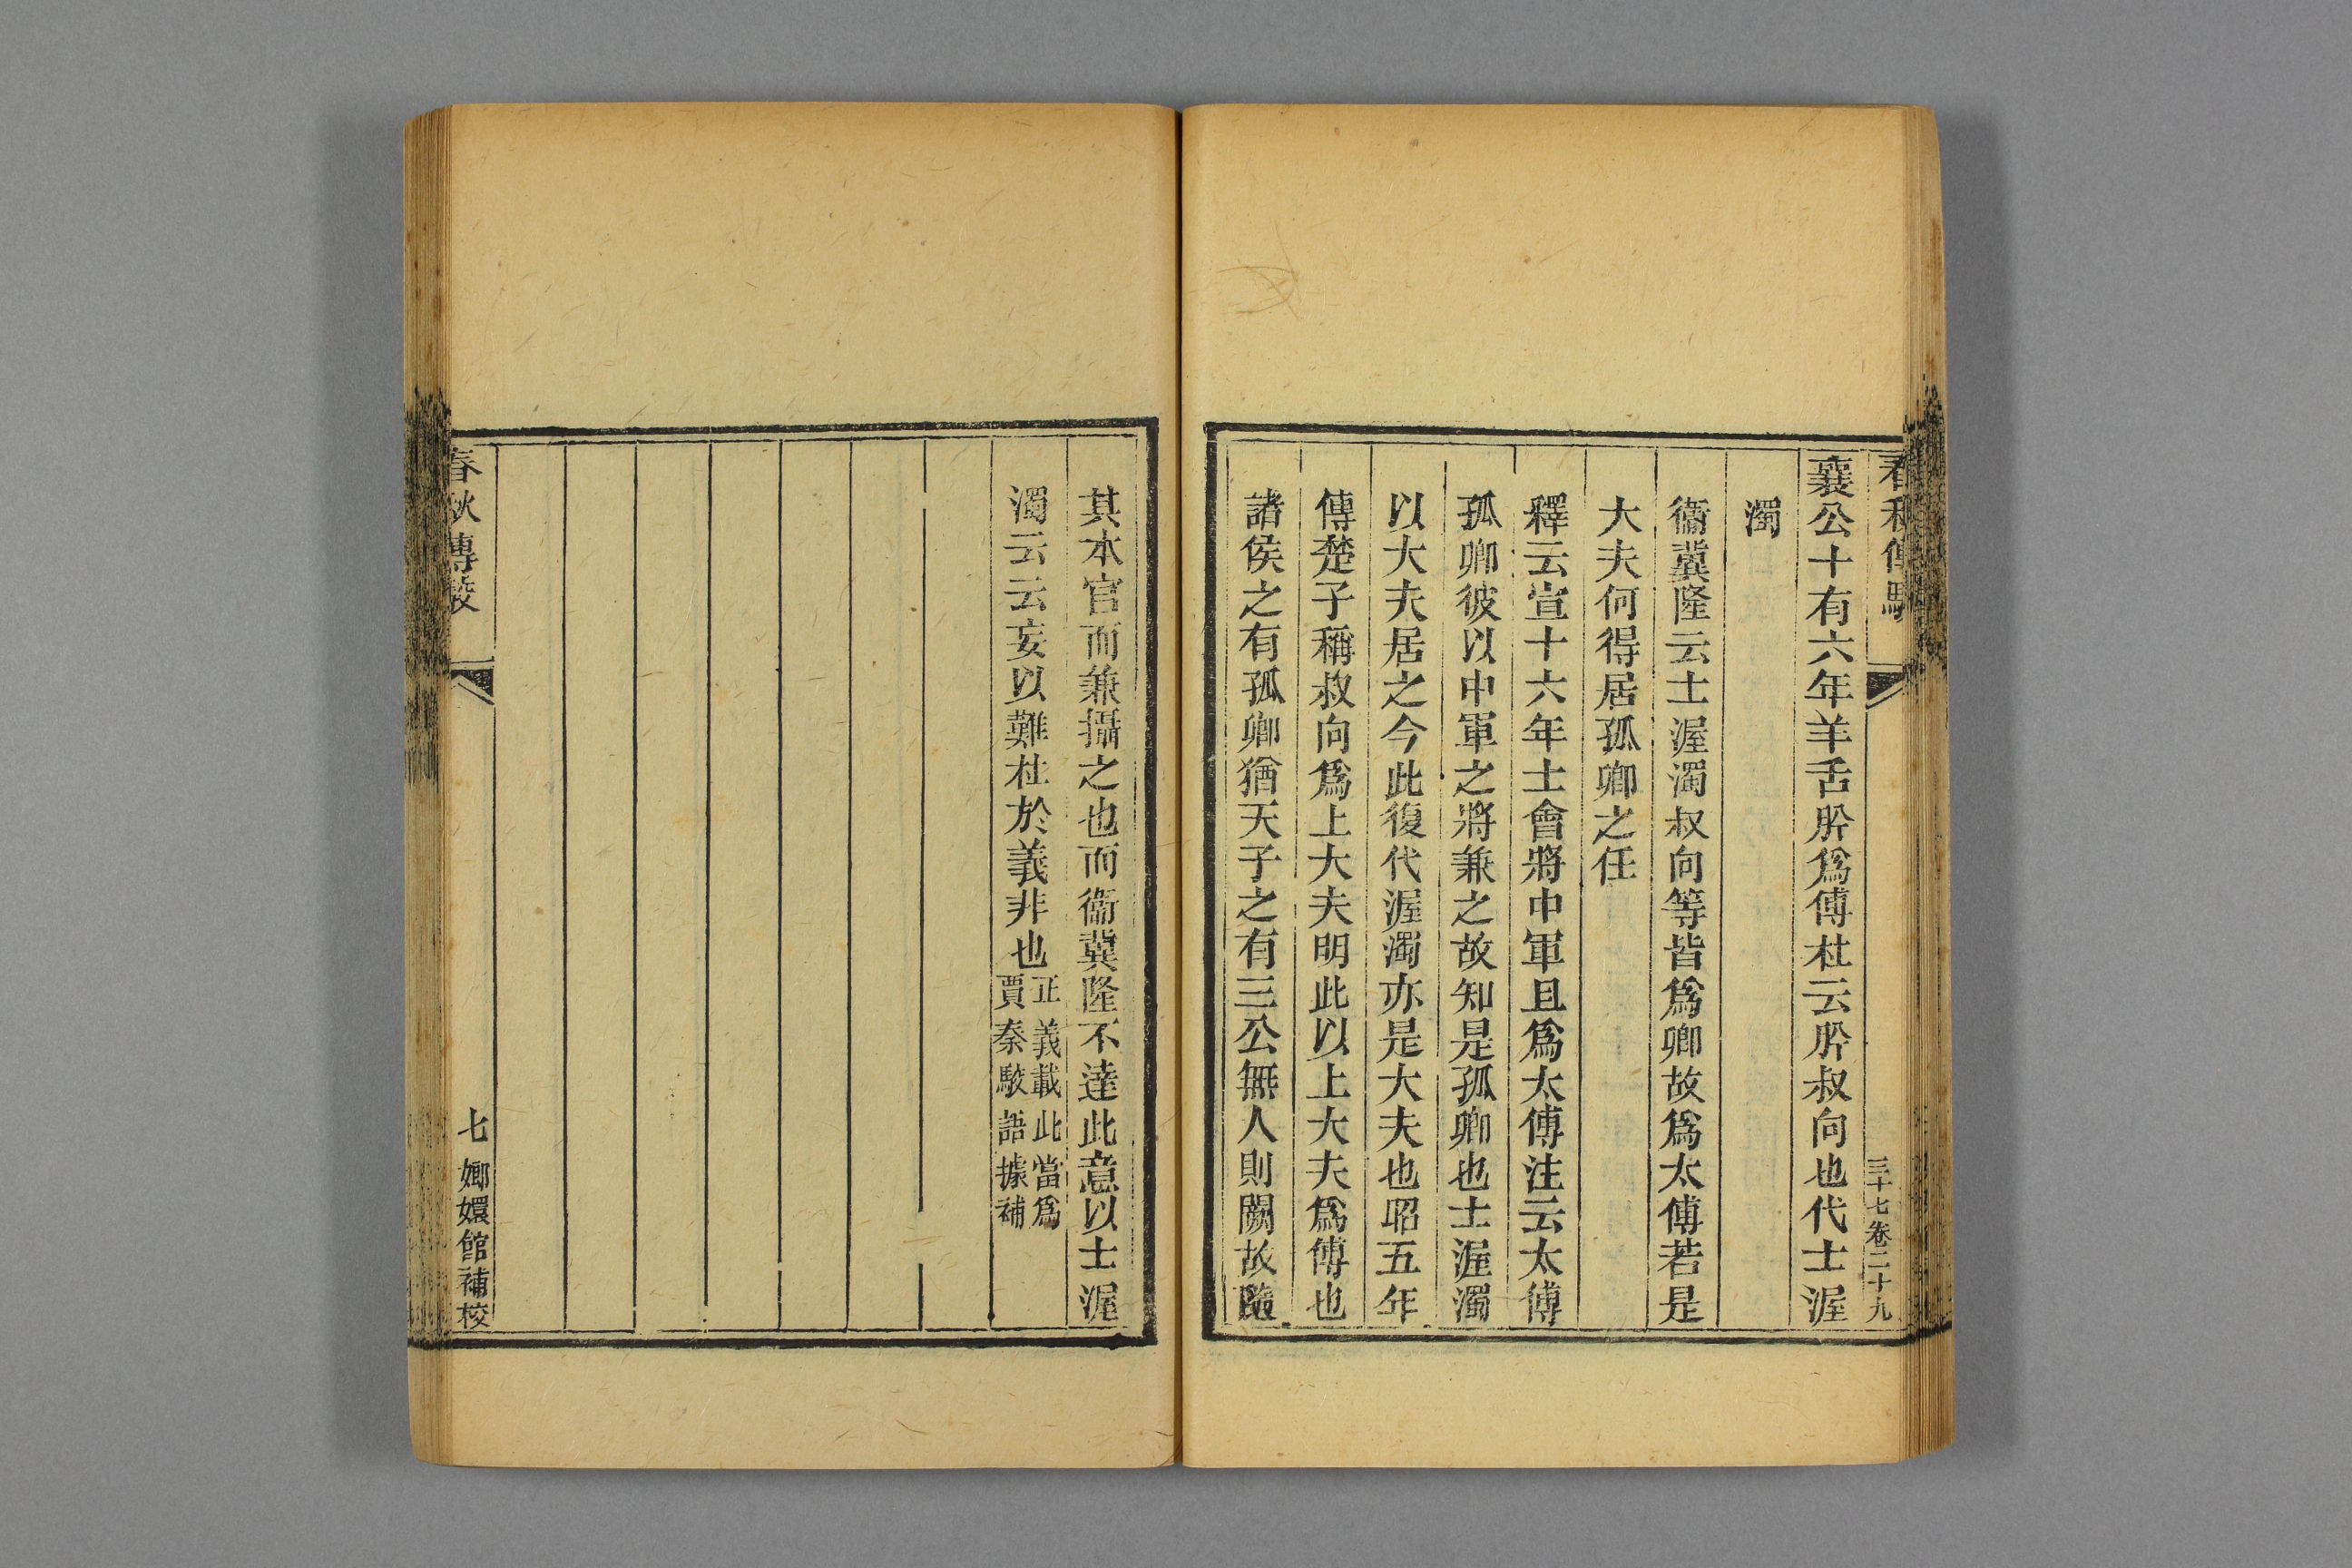 三十七卷二十九
襄公十有六年羊舌肸爲傅杜云肸叔向也代士渥
濁
衞冀隆云士渥濁叔向等皆爲卿故爲太傅若是
大夫何得居孤卿之任
釋云宣十六年士會將中軍且爲太傅注云太傅
孤卿彼以中軍之將兼之故知是孤卿也士渥濁
以大夫居之今此復代渥濁亦是大夫也昭五年
傳楚子稱叔向爲上大夫明此以上大夫爲傅也
諸侯之有孤卿猶天子之有三公無人則闕故隨
其本官而兼攝之也而衞冀隆不達此意以士渥
濁云云妄以難杜於義非也
正義載此當爲
賈秦駮語據補
春秋傳駮
七
嫏嬛館補校